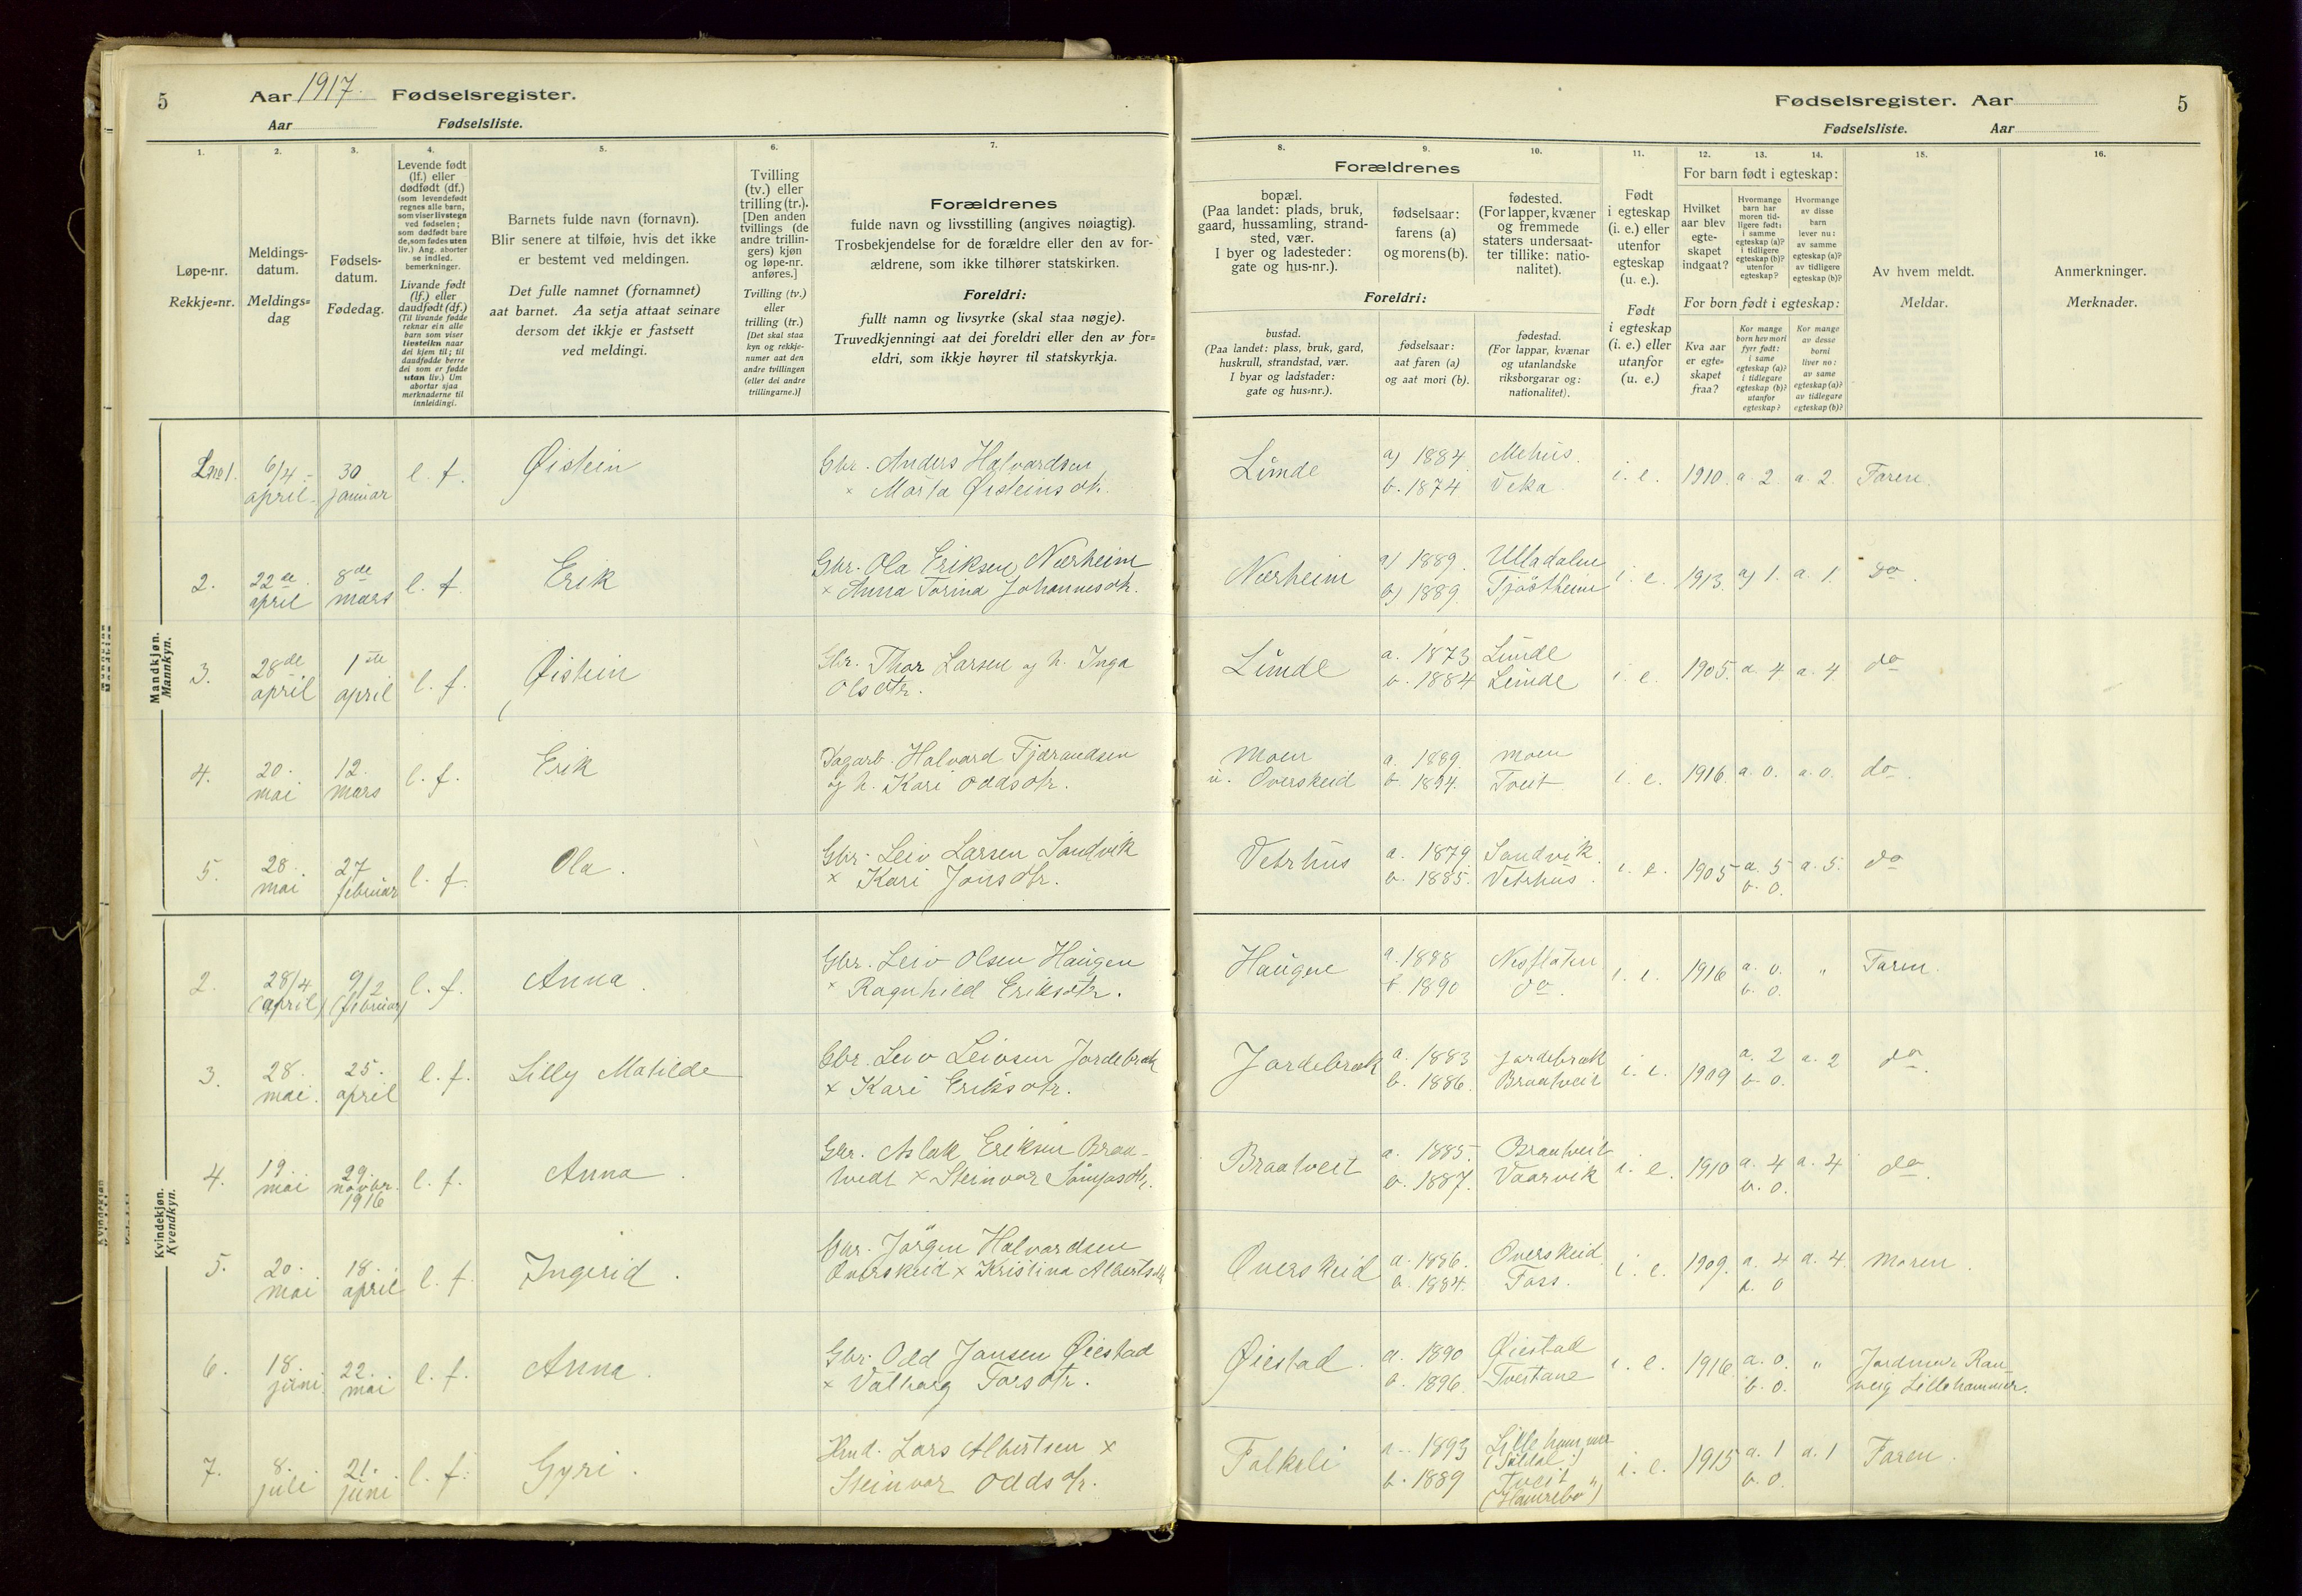 5
Aar 1917. Fødselsregister.
Aar Fødselsliste.
1.
Løpe-nr.
Rekkje=nr.
2.
Meldings-
datum.
Meldings=
dag
3.
Fødsels-
datum.
Fødedag.
4.
Levende født
(lf.) eller
dødfødt (df.)
(som levendefødt
regnes alle barn,
som viser livstegn
ved fødselen;
som dødfødt bare
de, som fødes uten
liv.) Ang. aborter
se indled.
bemerkninger.
Livande født
(lf.) eller
daudfødt (df.)
(Til livande fødde
reknar ein alle
born som viser
livsteikn naar
dei kjem til; til
daudfødde berre
dei som er fødde
utan liv.) Um
abortar sjaa
merknaderne til
innleidingi.
5.
Barnets fulde navn (fornavn).
Blir senere at tilføie, hvis det ikke
er bestemt ved meldingen.
Det fulle namnet (fornamnet)
aat barnet. Aa setja attaat seinare
dersom det ikkje er fastsett
ved meldingi.
6.
Tvilling
(tv.) eller
trilling (tr.).
[Den anden
tvillings (de
andre trillin-
gers) kjøn
og løpe-nr.
anføres.]
Tvilling (tv.)
eller
trilling (tr.)
[Det skal staa
kyn og rekkje-
numer aat den
andre tvillingen
(eller dei andre
trillingarne.)]
7.
Forældrenes
fulde navn og livsstilling (angives nøiagtig).
Trosbekjendelse for de forældre eller den av for-
ældrene, som ikke tilhører statskirken.
Foreldri:
fullt namn og livsyrke (skal staa nøgje).
Truvedkjenningi aat dei foreldri eller den av for=
eldri, som ikkje høyrer til statskyrkja.
Fødselsregister. Aar 5
Fødselsliste. Aar
Forældrenes
8.
bopæl.
(Paa landet: plads, bruk,
gaard, hussamling, strand-
sted, vær.
I byer og ladesteder:
gate og hus-nr.).
9.
fødselsaar:
farens (a)
og morens (b).
10.
fødested.
(For lapper, kvæner
og fremmede
staters undersaat-
ter tillike: natio-
nalitet).
Foreldri:
bustad.
(Paa landet: plass, bruk, gard,
huskrull, strandstad, vær.
I byar og ladstader:
gate og hus=nr.).
fødselsaar:
aat faren (a)
og aat mori (b).
fødestad.
(For lappar, kvænar
og utanlandske
riksborgarar og:
nationalitet).
11.
Født
i egteskap
(i. e.) eller
utenfor
egteskap
(u. e.).
Født
i egteskap
(i. e.) eller
utanfor
(u. e.)
12. 13. 14.
For barn født i egteskap:
Hvilket
aar blev
egte-
skapet
indgaat?
Hvormange
barn har
moren tid-
ligere født:
i samme
egteskap (a)?
i tidligere
egteskap (b)?
utenfor
egteskap?
Hvormange
av disse
barn
lever nu:
av samme
egteskap (a)?
av tidligere
egteskap (b)?
For born født i egteskap:
Kva aar
er egte-
skapet
fraa?
Kor mange
born hev mori
fyrr født:
i same
egteskap (a)?
i tidlegare
egteskap (b)?
utanfor
egteskap?
Kor mange
av desse
borni
liver no:
av same
egteskap (a)?
av tidlegare
egteskap (b)?
15.
Av hvem meldt.
Meldar.
16.
Anmerkninger.
Merknader.
Mandkjøn.
Mannkyn.
1. 6/4 - april. 30 januar l. f. Øistein Gbr. Anders Halvardsen
× Marta Øisteinsdtr. Lunde a) 1884. b. 1874 Mehus. Veka i. e. 1910. a. 2. a. 2. Faren.
2. 22de april 8de mars l. f. Erik Gbr. Ola Eriksen Nærheim
× Anna Torina Johannesdtr. Nærheim a) 1889. b) 1889. Ulladalen Tjøstheim i. e. 1913. a) 1. a. 1. do.
3. 28de april 1ste april l. f. Øistein Gbr. Thor Larsen og h. Inga
Olsdtr. Lunde a. 1873 b. 1884 Lunde Lunde i. e. 1905. a. 4 a. 4. do
4. 20. mai 12. mars l. f. Erik Dagarb. Halvard Tjerandsen
og h. Kari Oddsdtr. Moen u. Overskeid a. 1889. b. 1894. Moen Tveit i. e. 1916. a. 0. a. 0. do.
5. 28. mai 27 februar l. f. Ola. Gbr. Leiv Larsen Sandvik
× Kari Jonsdtr. Vetrhus a. 1879. b. 1885. Sandvik. Vetrhus. i. e. 1905 a. 5 b. 0. a. 5. do
Kvindekjøn.
Kvendkyn.
2. 28/4 (april) 9/2 (februar) l. f. Anna. Gbr. Leiv Olsen Haugen
× Ragnhild Eriksdtr. Haugen a. 1888 b. 1890 Nesflaten do. i. e. 1916 a. 0. b. 0. " Faren.
3. 28. mai. 25. april l. f. Lilly Matilde Gbr. Leiv Leivsen Jordebræk
× Kari Eriksdtr. Jordebræk a. 1883 b. 1886. Jordebræk Braatveit i. e. 1909 a. 2 b. 0. a. 2 do.
4. 19. mai 29. novbr. 1916 l. f. Anna. Gbr. Aslak Eriksen Braa-
tveit × Steinvor Sjursdtr. Braatveit a. 1885. b. 1887. Braatveit Vaarvik i. e. 1910 a. 4 b. 0. a. 4 do.
5. 20. mai 18. april l. f. Ingerid. Gbr. Jørgen Halvardsen
Overskeid × Kristina Albertsdtr Overskeid a. 1886. b. 1884. Overskeid. Foss. i. e. 1909. a. 4 b. 0 a. 4. Moren.
6. 18. juni. 22. mai l. f. Anna. Gbr. Odd Jansen Øiestad
× Valborg Torsdtr. Øiestad. a. 1890 b. 1896. Øiestad Tveitane i. e. 1916. a. 0. b. 0. " Jordmor Ran-
veig Lillehammer.
7. 8. juli 21. juni l. f. Gyri. Hmd. Lars Albertsen ×
Steinvor Oddsdtr. Falkeli a. 1893 b. 1889 Lillehammer (Suldal) Tveit (Hamrebø") i. e. 1915 a. 1 b. 0. a. 1 Faren.